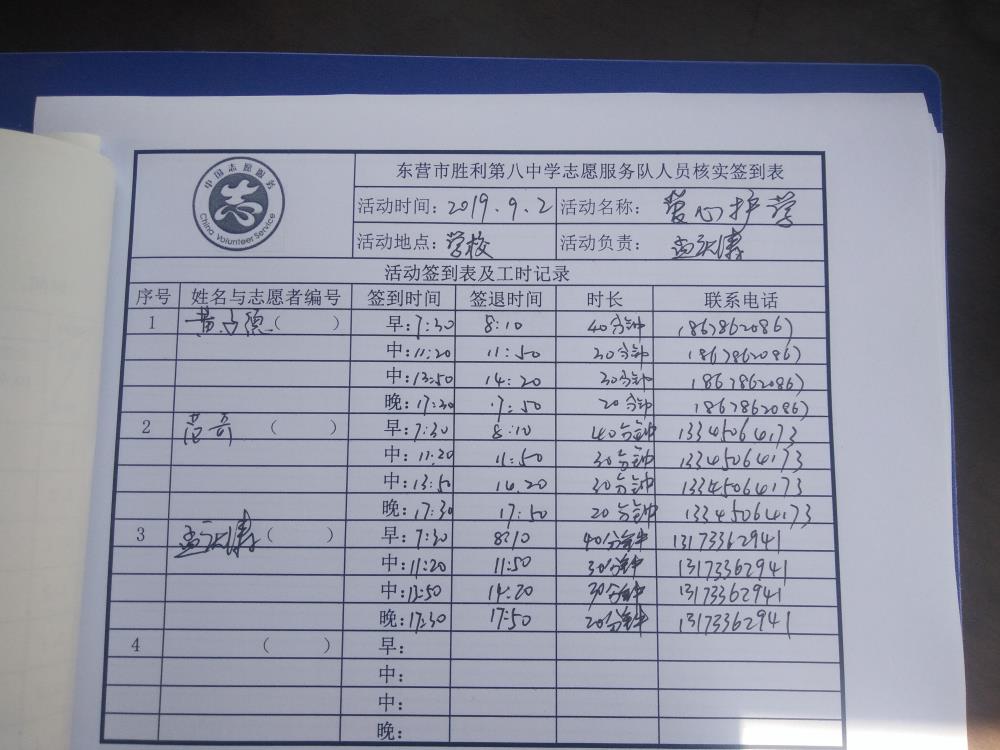 中国志愿服务
China Volunteer Service
东营市胜利第八中学志愿服务队人员核实签到表
活动时间：2019.9.2 活动名称：爱心护学
活动地点：学校 活动负责：
活动签到表及工时记录
序号 姓名与志愿者编号 签到时间 签退时间 时长 联系电话
1 黄占德（ ） 早：7:30 8:10 40分钟 18678620867
中：11:20 11:50 30分钟 18678620867
中：13:50 14:20 30分钟 18678620867
晚：17:30 17:50 20分钟 18678620867
2 范奇（ ） 早：7:30 8:10 40分钟 13345064173
中：11:20 11:50 30分钟 13345064173
中：13:50 14.20 30分钟 13345064173
晚：17:30 17:50 20分钟 13345064173
3 （ ） 早：7:30 8:10 40分钟 13173362941
中：11:20 11:50 30分钟 13173362941
中：13:50 14:20 30分钟 13173362941
晚：17:30 17:50 20分钟 13173362941
4 （ ） 早：
中：
中：
晚：